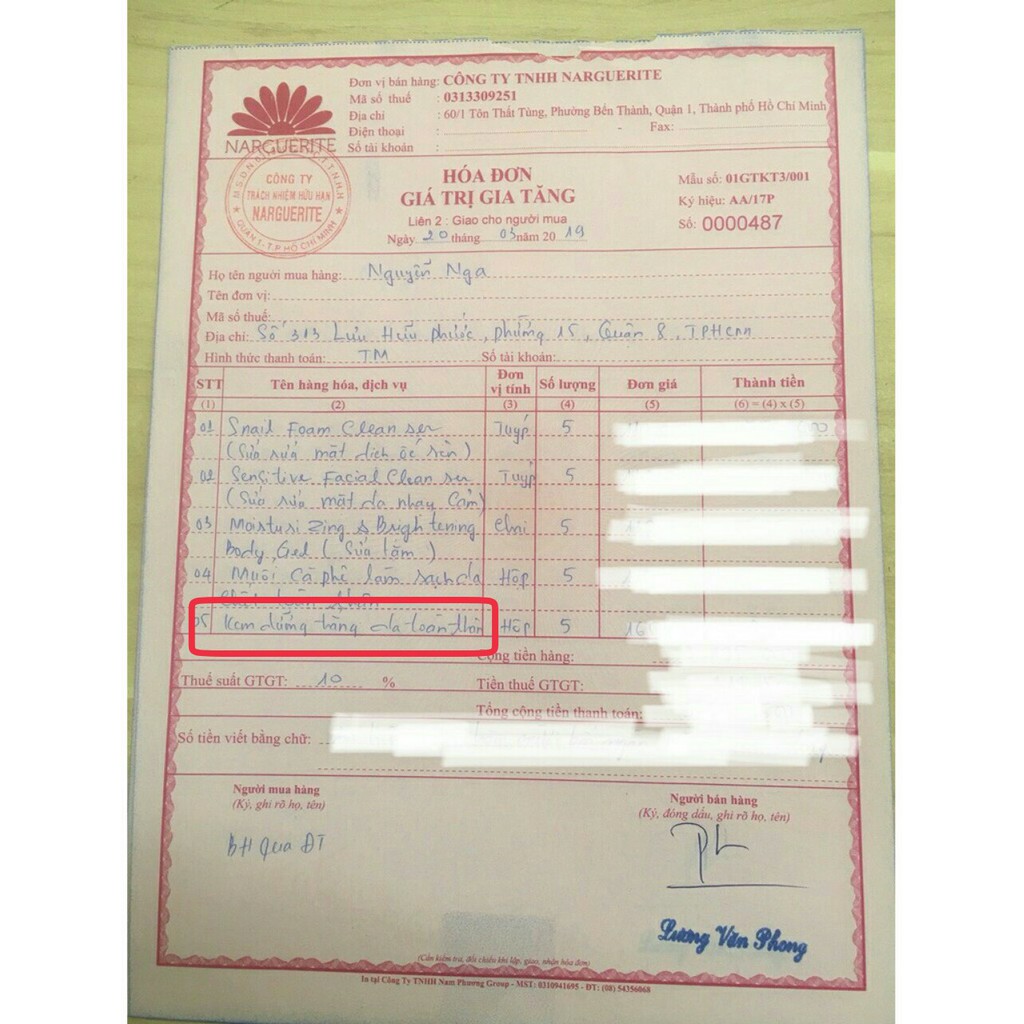 Đơn vị bán hàng: CÔNG TY TNHH NARGUERITE
Mã số thuế : 0313309251
Địa chỉ : 60/1 Tôn Thất Tùng, Phường Bến Thành, Quận 1, Thành phố Hồ Chí Minh
Điện thoại : - Fax:
Số tài khoản :
NARGUERITE
M.S.D.N:0 C.T.T.N.H.H
CÔNG TY
TRÁCH NHIỆM HỮU HẠN
NARGUERITE
QUẬN 1 - T.P HỒ CHÍ MINH
HÓA ĐƠN
GIÁ TRỊ GIA TĂNG
Liên 2 : Giao cho người mua
Ngày 20 tháng 03 năm 2019
Mẫu số: 01GTKT3/001
Ký hiệu: AA/17P
Số: 0000487
Họ tên người mua hàng: Nguyễn Nga
Tên đơn vị:
Mã số thuế:
Địa chỉ: Số 313 Lưu Hữu Phước, phường 15, Quận 8, TPHCM
Hình thức thanh toán: TM Số tài khoản:
STT Tên hàng hóa, dịch vụ Đơn vị tính Số lượng Đơn giá Thành tiền
(1) (2) (3) (4) (5) (6) = (4) x (5)
01 Snail Foam Cleanser Tuýp 5
(Sữa rửa mặt dịch ốc sên)
02 Sensitive Facial Cleanser Tuýp 5
(Sữa rửa mặt da nhạy cảm)
03 Moisturizing & Brightening Chai 5
Body Gel (Sữa tắm)
04 Muối cà phê làm sạch da Hộp 5
chết toàn thân
05 Kem dưỡng trắng da toàn thân Hộp 5
Cộng tiền hàng:
Thuế suất GTGT: 10 % Tiền thuế GTGT:
Tổng cộng tiền thanh toán:
Số tiền viết bằng chữ:
Người mua hàng
(Ký, ghi rõ họ, tên)
BH qua ĐT
Người bán hàng
(Ký, đóng dấu, ghi rõ họ, tên)
Lương Văn Phong
(Cần kiểm tra, đối chiếu khi lập, giao, nhận hóa đơn)
In tại Công Ty TNHH Nam Phương Group - MST: 0310941695 - ĐT: (08) 54356068